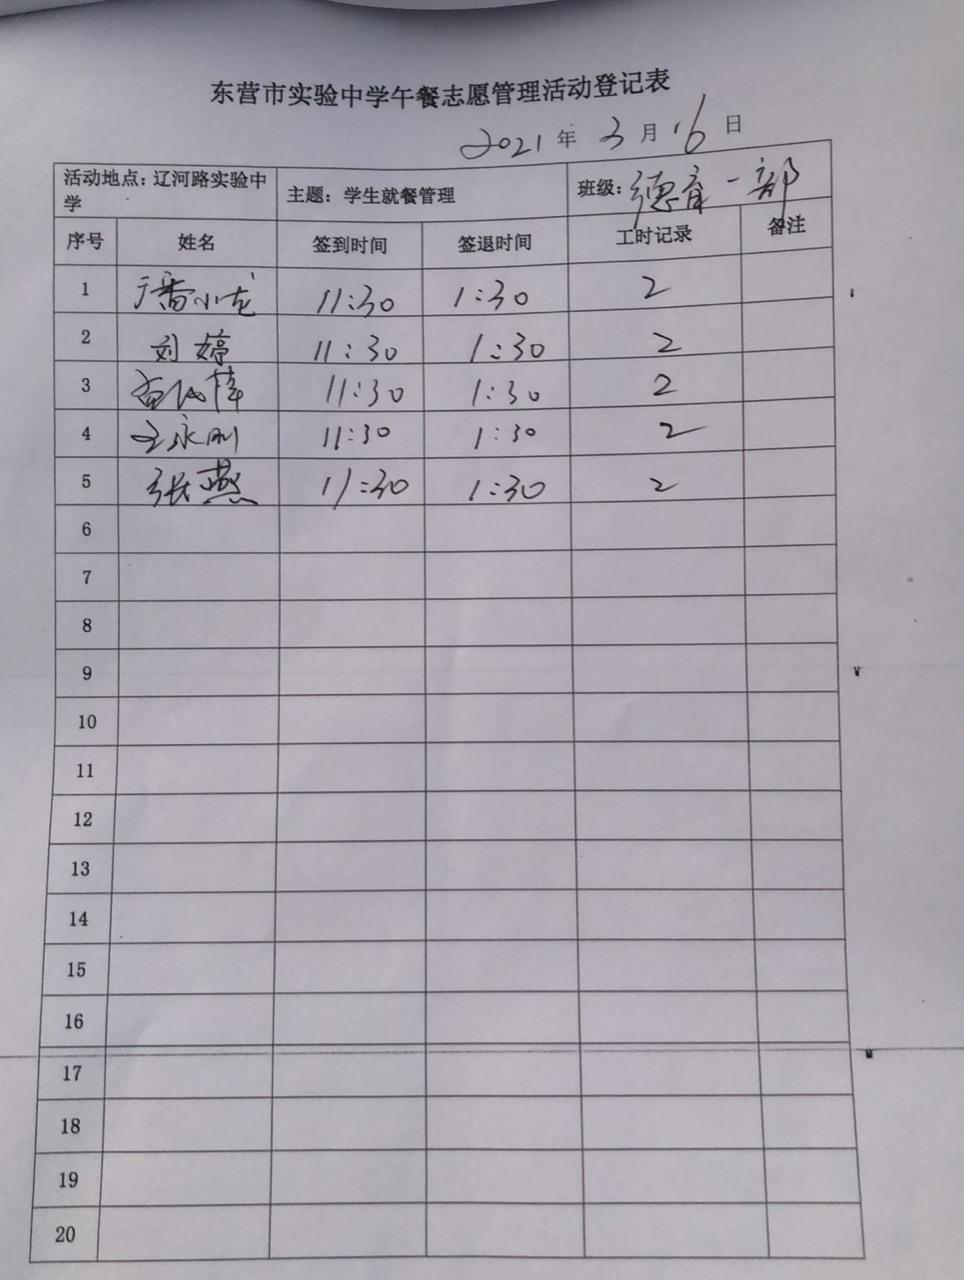 东营市实验中学午餐志愿管理活动登记表
2021年3月16日
活动地点：辽河路实验中学 主题：学生就餐管理 班级：德育一部
序号 姓名 签到时间 签退时间 工时记录 备注
1 潘小龙 11:30 1:30 2
2 刘婷 11:30 1:30 2
3 11:30 1:30 2
4 王永刚 11:30 1:30 2
5 张燕 11:30 1:30 2
6
7
8
9
10
11
12
13
14
15
16
17
18
19
20